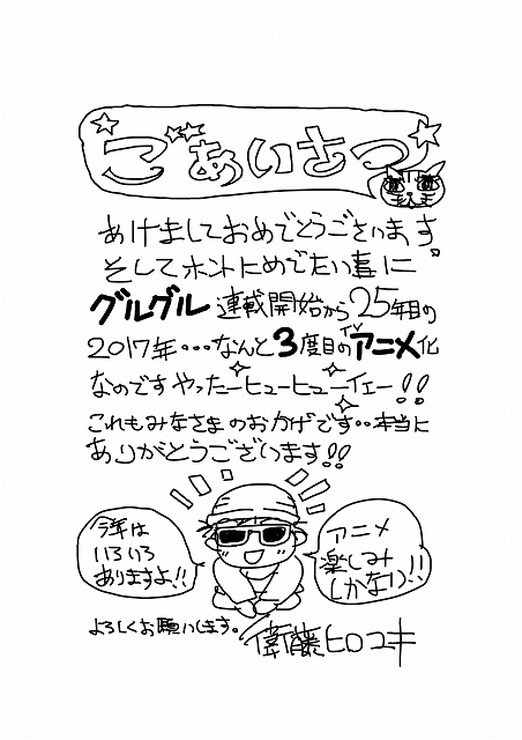 ごあいさつ
あけましておめでとうございます。
そしてホントにめでたい事に
グルグル連載開始から25年目の
2017年・・・なんと3度目のTVアニメ化
なのですやったーヒューヒューイェー!!
これもみなさまのおかげです・・本当に
ありがとうございます!!
今年は
いろいろ
ありますよ!!
アニメ
楽しみ
しかない!!
よろしくお願いします。
衛藤ヒロユキ